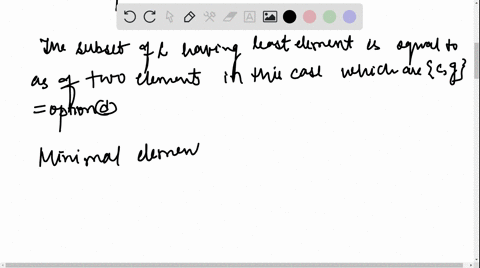 The subset of L having least element is equal to
as of two element in this case which are {c,g}
= option d
Minimal elemen